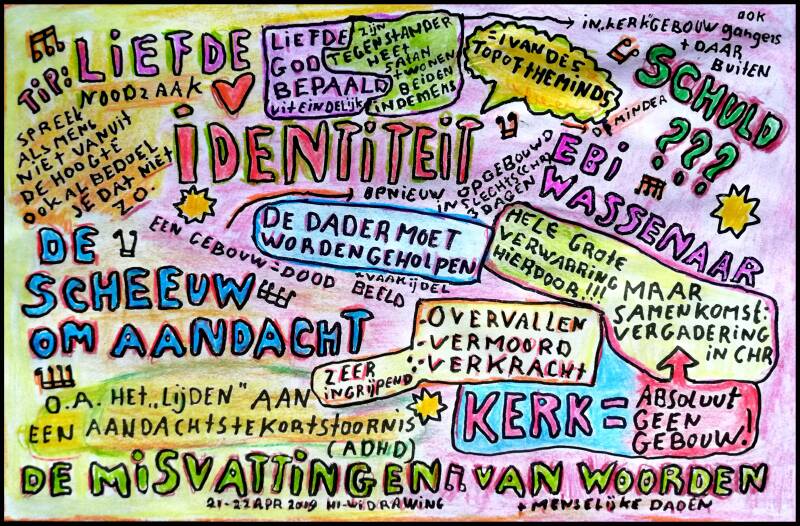 TiP:
LiEFDE
NOODZAAK
SPREEK
ALS MENS
NiET VANUIT
DE HOOGTE
OOK AL BEDOEL
JE DAT NIET
ZO.
LIEFDE
GOD
BEPAALD
UITEINDELIJK
ZIJN
TEGENSTANDER
HEET
SATAN
+ WONEN
BEIDEN
IN DE MENS
=1 VAN DE 5
TOP OF THE MINDS
IN „KERK" GEBOUW gangers
OOK
+ DAAR
BUITEN
SCHULD
???
OF MINDER
iDENTiTEiT
EBi
WASSENAAR
OPNIEUW OPGEBOUWD
IN SLECHTS (CHR)
3 DAGEN
DE DADER MOET
WORDEN GEHOLPEN
EEN GEBOUW = DOOD BEELD
+ VAAK IJDEL
HELE GROTE
VERWARRING
HIERDOOR!!!
MAAR
SAMENKOMST:
VERGADERING
IN CHR
DE
SCHEEUW
OM AANDACHT
ZEER
INGRIJPEND
:
-OVERVALLEN
-VERMOORD
-VERKRACHT
O.A. HET „LIJDEN" AAN
EEN AANDACHTSTEKORTSTOORNIS
(ADHD)
KERK =
ABSOLUUT
GEEN
GEBOUW!
DE MiSVATTINGEN VAN WOORDEN
+ MENSELIJKE DADEN
21-22 APR 2019 HI-WIDRAWING